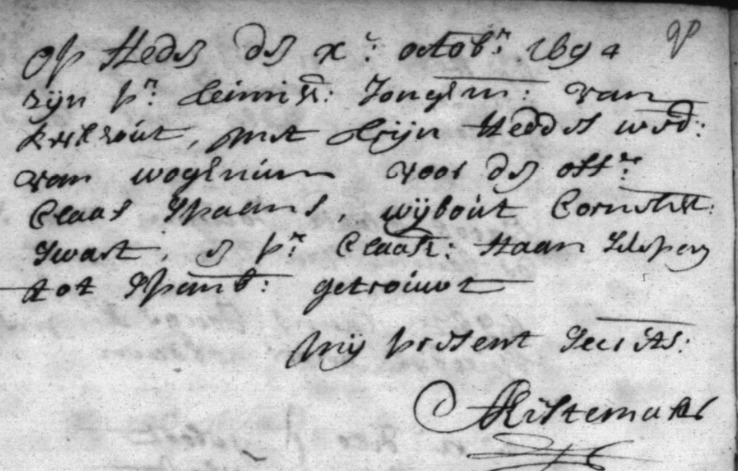 Op Heden den xe: octobr: 1694
zijn pr: Cleinricx: Jongem: van
Kerkhout, met Trijn Heddes wed:
van wogenum voor den offr:
Claas Spaans, wijbout Cornelisz:
Swart, en pr: Claasz: Haan Schepen
tot Spanb: getrouwt
Mij present Secrets:
Kistemaker